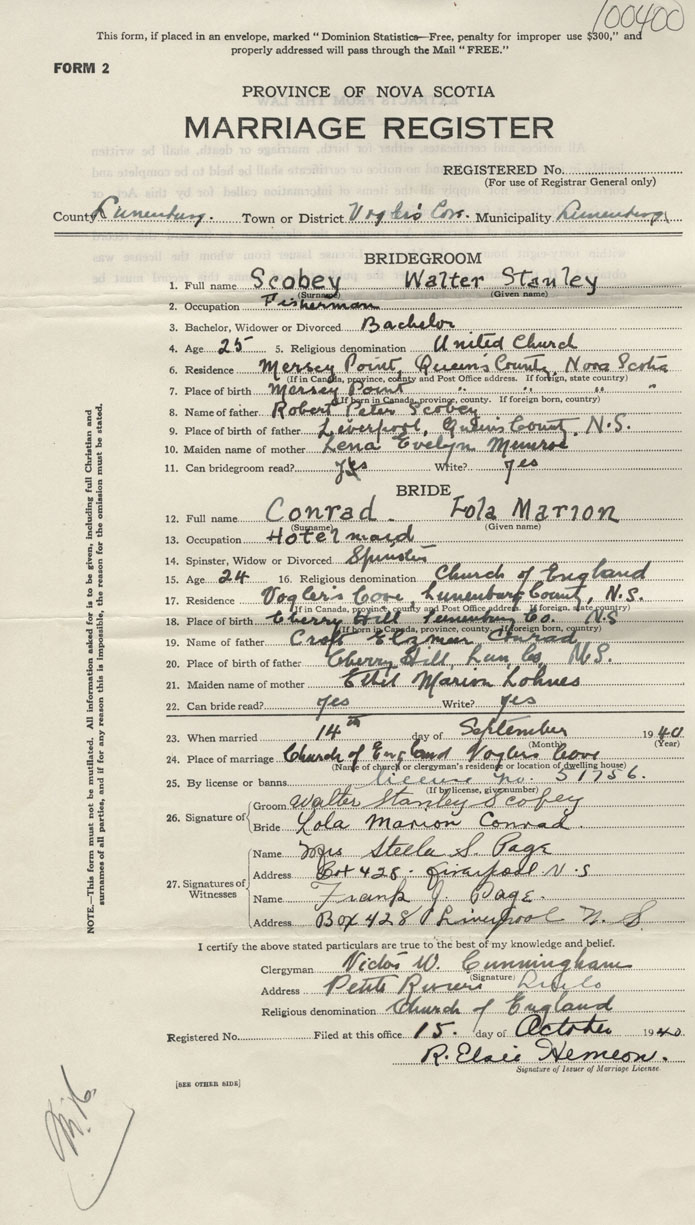 100400
This form, if placed in an envelope, marked "Dominion Statistics—Free, penalty for improper use $300," and
properly addressed will pass through the Mail "FREE."
FORM 2
PROVINCE OF NOVA SCOTIA
MARRIAGE REGISTER
REGISTERED No.
(For use of Registrar General only)
County Lunenburg. Town or District Vogler's Cove. Municipality Lunenburg
BRIDEGROOM
1. Full name Scobey Walter Stanley
(Surname) (Given name)
2. Occupation Fisherman
3. Bachelor, Widower or Divorced Bachelor
4. Age 25 5. Religious denomination United Church
6. Residence Mersey Point, Queen's County, Nova Scotia
(If in Canada, province, county and Post Office address. If foreign, state country)
7. Place of birth Mersey Point " " "
(If born in Canada, province, county. If foreign born, country)
8. Name of father Robert Peter Scobey
9. Place of birth of father Liverpool, Queens County, N.S.
10. Maiden name of mother Lena Evelyn Munroe
11. Can bridegroom read? yes Write? yes
BRIDE
12. Full name Conrad Lola Marion
(Surname) (Given name)
13. Occupation Hotel maid
14. Spinster, Widow or Divorced Spinster
15. Age 24 16. Religious denomination Church of England
17. Residence Vogler's Cove, Lunenburg County, N.S.
(If in Canada, province, county and Post Office address. If foreign, state country)
18. Place of birth Cherry Hill Lunenburg Co. N.S
(If born in Canada, province, county. If foreign born, country)
19. Name of father Conrad
20. Place of birth of father Cherry Hill, Lun Co, N.S.
21. Maiden name of mother Ethel Marion Lohnes
22. Can bride read? yes Write? yes
23. When married 14th day of September 1940
(Month) (Year)
24. Place of marriage Church of England Voglers Cove
(Name of church or clergyman's residence or location of dwelling house)
25. By license or banns license no. 51756.
(If by license, give number)
26. Signature of
Groom Walter Stanley Scobey
Bride Lola Marion Conrad.
27. Signatures of Witnesses
Name Mrs Stella S. Page
Address Box 428. Liverpool N.S
Name Frank J. Page.
Address Box 428 Liverpool N. S.
I certify the above stated particulars are true to the best of my knowledge and belief.
Clergyman Victor W. Cunningham
(Signature)
Address Petite Riviere
Religious denomination Church of England
Registered No. Filed at this office 15. day of October 1940
R. Elsie Hemeon.
Signature of Issuer of Marriage License
[SEE OTHER SIDE]
NOTE.—This form must not be mutilated. All information asked for is to be given, including full Christian and
surnames of all parties, and if for any reason this is impossible, the reason for the omission must be stated.